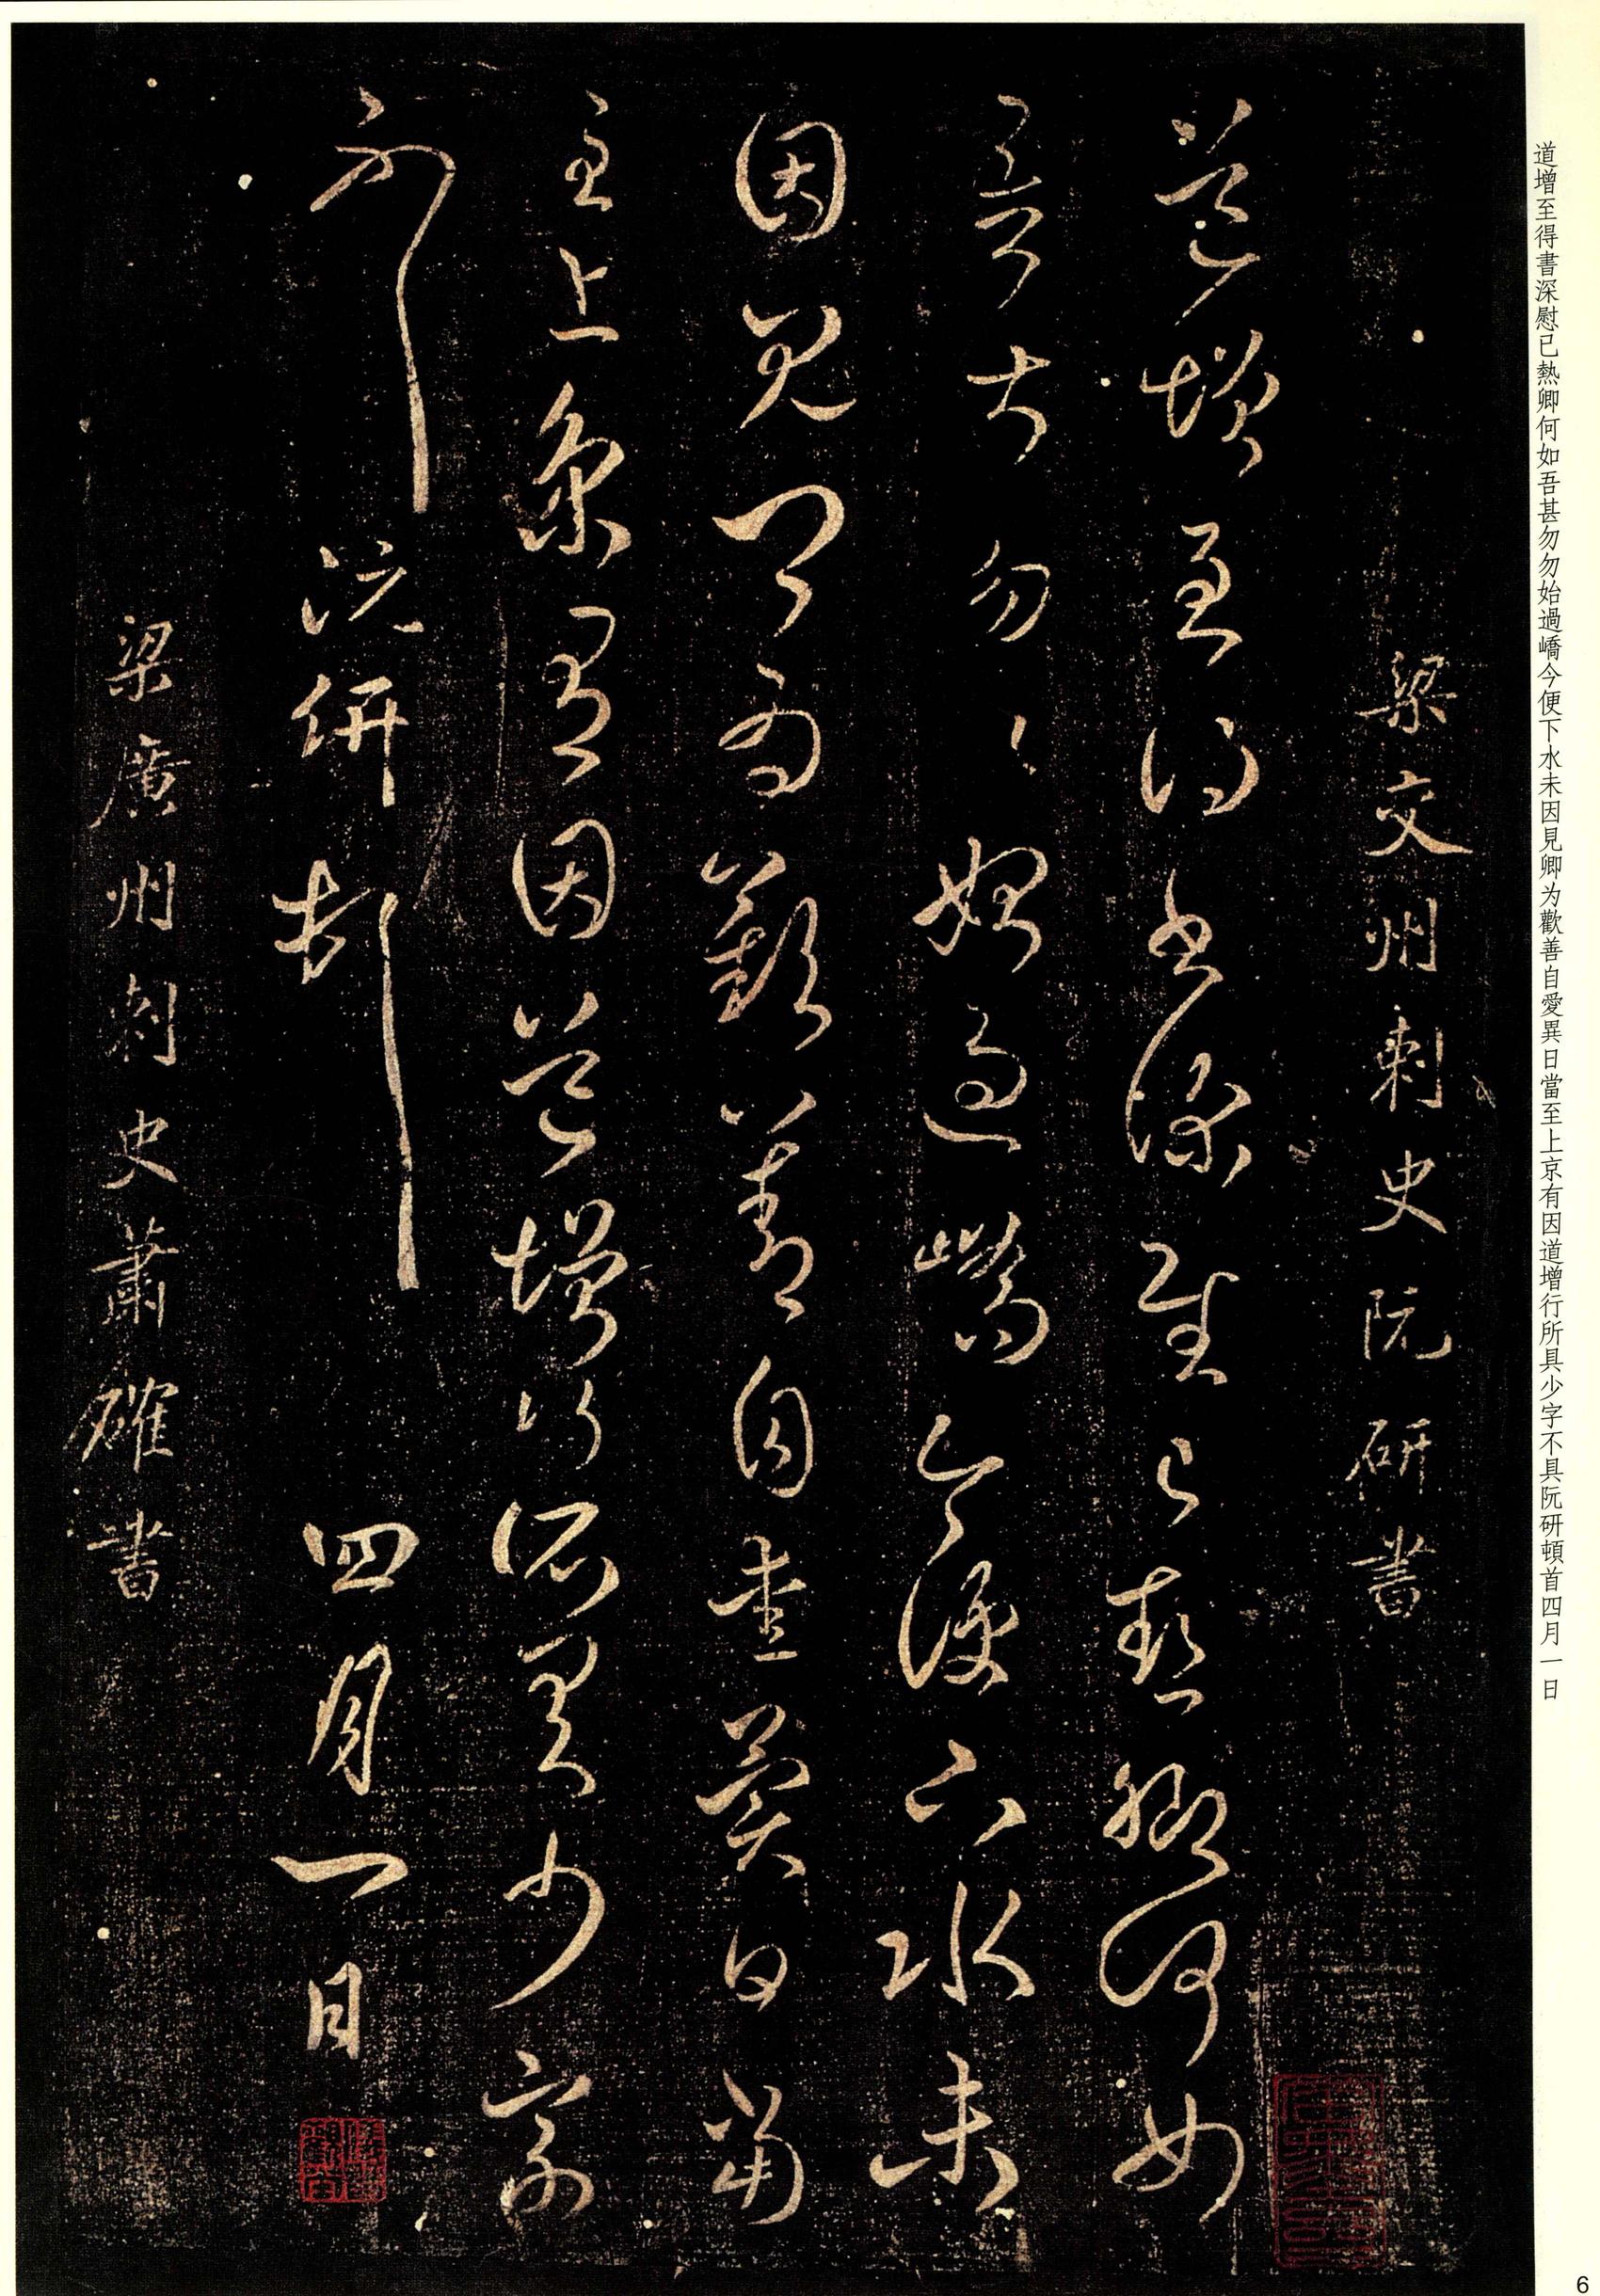 道增至得書深慰已熱卿何如吾甚勿勿始過嶠今便下水未因見卿为歡善自愛異日當至上京有因道增行所具少字不具阮研頓首四月一日
梁交州刺史阮研書
道增至得書深慰已熱卿何如
吾甚勿〻始過嶠今便下水未
因見卿为歡善自愛異日當
至上京有因道增行所具少字
不具阮研頓首四月一日
梁廣州刺史蕭確書
6